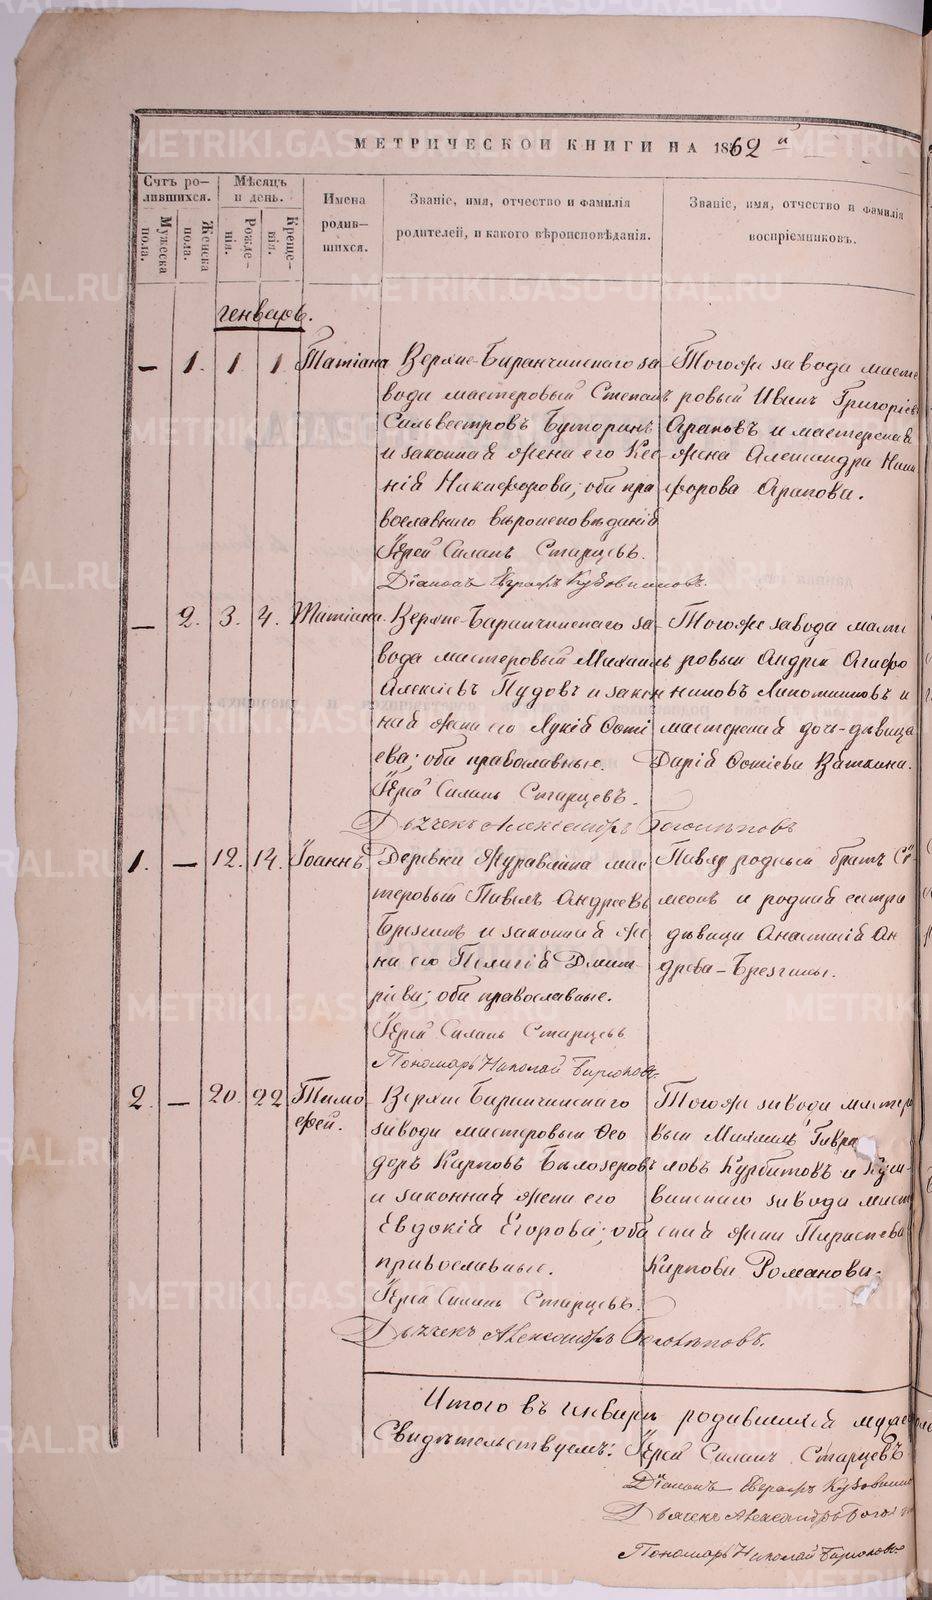 МЕТРИЧЕСКОЙ КНИГИ НА 1862 й
Счтъ ро-
дившихся.
Мужеска
пола.
Женска
пола.
Мѣсяцъ
и день.
Рожде-
нія.
Креще-
нія.
Имена
родив-
шихся.
Званіе, имя, отчество и фамилія
родителей, и какого вѣроисповѣданія.
Званіе, имя, отчество и фамилія
воспріемниковъ.
генварь.
— 1. 1 1 Татіана
Верхне-Баранчинскаго за-
вода мастеровый Степанъ
Сильвестровъ Буторинъ
и законная жена его Ксе
нія Никифорова; оба пра
вославнаго вѣроисповѣданія
Іерей Силанъ Старцевъ.
Діаконъ Евграфъ Кузовниковъ.
Тогоже завода масте
ровый Иванъ Григоріев
Араповъ и мастерская
жена Александра Ники
форова Арапова.
— 2. 3. 4. Татіана.
Верхне-Баранчинскаго за-
вода мастеровый Михаилъ
Алексіевъ Пудовъ и закон
ная жена его Лукія Фоті
ева; оба православные.
Іерей Силанъ Старцевъ.
Дьячекъ Александръ Боголѣповъ
Тогоже завода
ровый Андрей Агафо
никовъ и
мастерская дочь-дѣвица
Дарія Фотіева Вяткина.
1. — 12. 14. Іоаннъ.
Деревни Журавлика мас
теровый Павелъ Андреевъ
Брезгинъ и законная же
на его Пелагія Дмит-
ріева; оба православные.
Іерей Силанъ Старцевъ
Пономарь Николай Бирюковъ.
Павлу родный братъ Сѵ-
меонъ и родная сестра
дѣвица Анастасія Ан
дреева-Брезгины.
2. — 20. 22 Тимо
фей.
Верхне Баранчинскаго
завода мастеровый Ѳео
доръ Карповъ Бѣлозеровъ
и законная жена его
Евдокія Егорова; оба
православные.
Іерей Силанъ Старцевъ.
Дьячекъ Александръ Боголѣповъ.
Тогоже завода мастеро
вый Михаилъ Гаври
ловъ Курбатовъ и Куш-
винскаго завода маст
ская жена Параскева
Карпова Романова.
Итого въ генварѣ родившихся мужес
Свидѣтельствуемъ: Іерей Силанъ Старцевъ
Діаконъ Евграфъ Кузовник
Дьячекъ Александръ Бого
Пономарь Николай Бирюковъ
METRIKI.GASO-URAL.RU